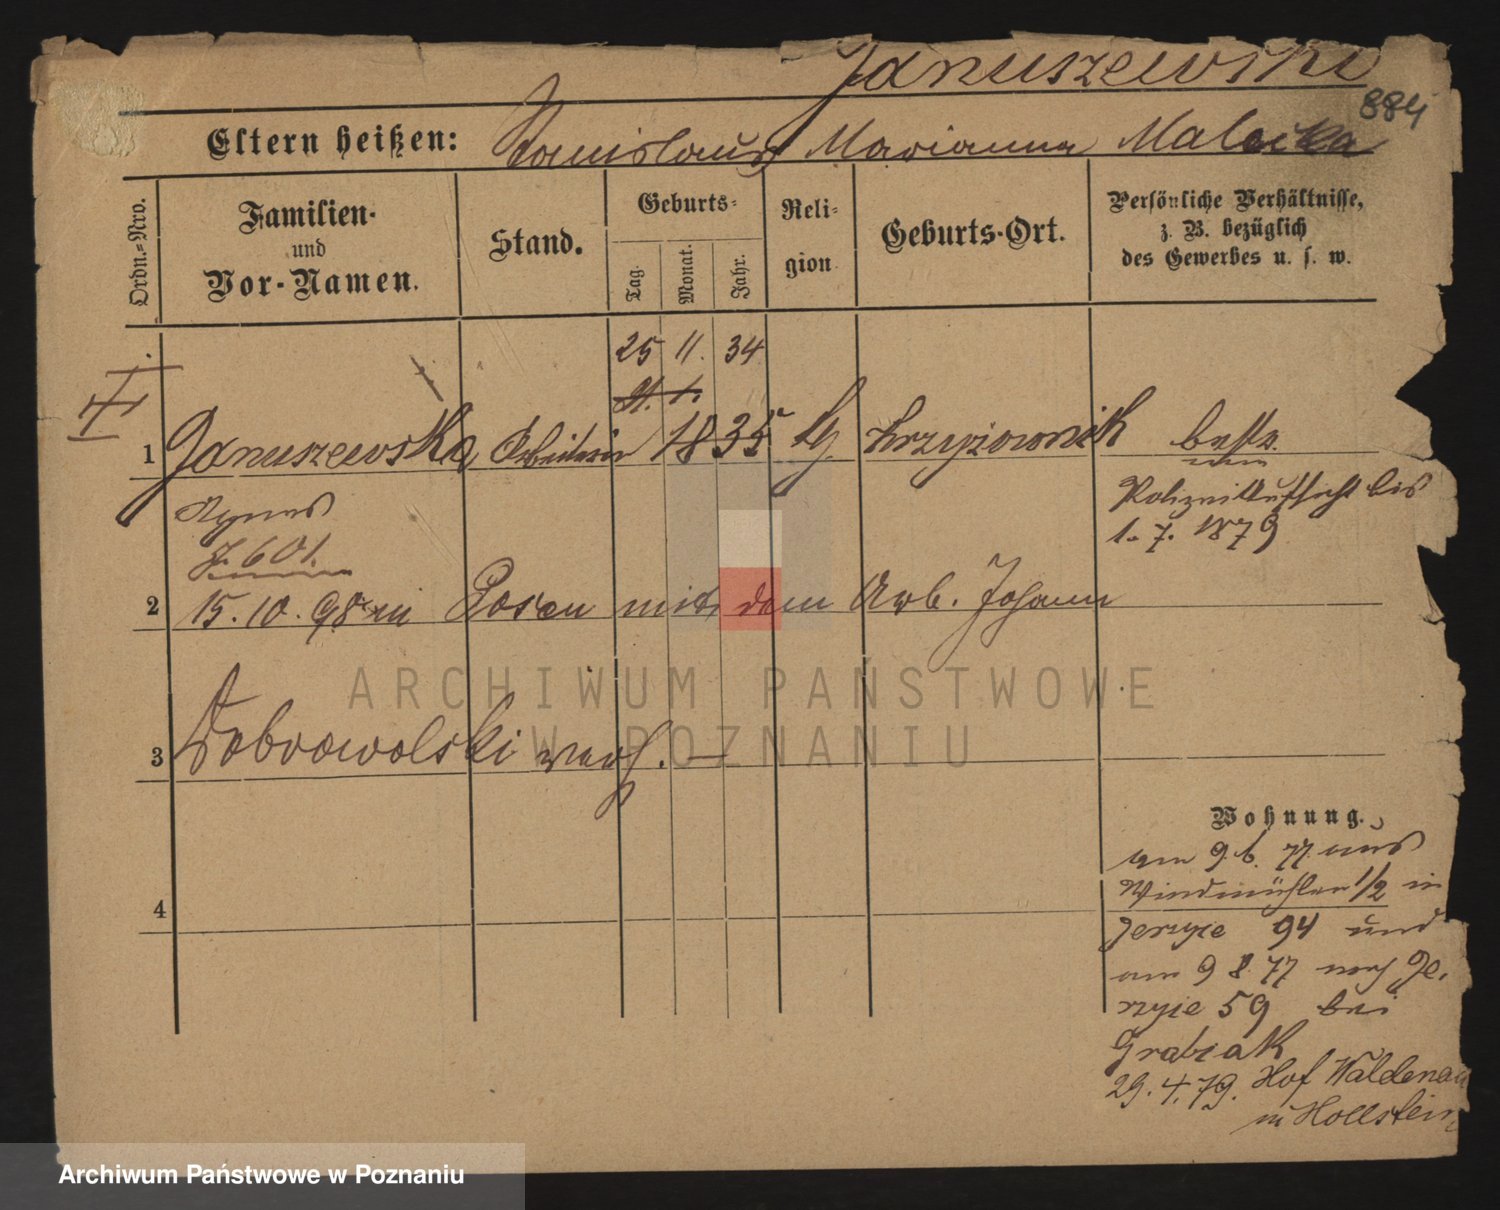 Januszewski
884
Eltern heißen: Stanislaus Marianna Malecka
Ordn.-Nro.
Familien- und Vor-Namen.
Stand.
Geburts-
Tag. Monat. Jahr.
Reli- gion
Geburts-Ort.
Persönliche Verhältnisse, z. B. bezüglich des Gewerbes u. s. w.
25 11. 34
1 Januszewska Arbeiterin 1835 Krzyżownik bestr.
Agnes
Polizeiaufsicht bis
1. 7. 1879
J. 601.
2 15. 10. 98 in Posen mit dem Arb. Johann
3 Dobrowolski verh. —
4
Wohnung.
am 9. 6. 77. aus
Windmühlen 1/2 in
Jerzyce 94 und
am 9 8. 77 nach Je-
rzyce 59 bei
Grabiak
29. 4. 79. Hof Waldenau
in Hollstein
ARCHIWUM PAŃSTWOWE
W POZNANIU
Archiwum Państwowe w Poznaniu